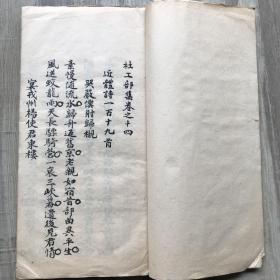 杜工部集卷之十四
近體詩一百十九首
哭嚴僕射歸櫬
素幔隨流水歸舟返舊京老親如宿昔部曲異平生
風送蛟龍雨天長驃騎營一哀三峽暮遺後見君情
宴戎州楊使君東樓